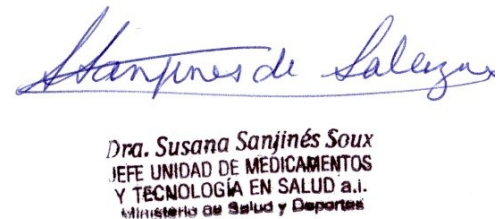 SSanjines de Salazar
Dra. Susana Sanjinés Soux
JEFE UNIDAD DE MEDICAMENTOS
Y TECNOLOGÍA EN SALUD a.i.
Ministerio de Salud y Deportes